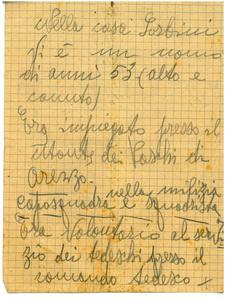 Nella casa Gorbini
Vi è un uomo
di anni 53 (alto e
canuto)
Era impiegato presso il
Monte dei Paschi di
Arezzo.
nella milizia
caposquadra e squadrista
Era Volontario al servi
zio dei tedeschi presso il
comando tedesco x